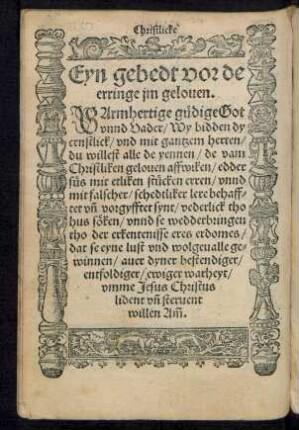 Christlicke
Eyn gebedt vor de
erringe jm gelouen.
BArmhertige güdige Got
vnnd Vader / Wy bidden dy
ernstlick / vnd mit gantzem herten /
du willest alle de yennen / de vam
Christliken gelouen affwiken / edder
süs mit etliken stücken erren / vnnd
mit falscher / schedtliker lere behaff-
tet vñ vorgyfftet synt / vederlick tho
hus söken / vnnd se wedderbringen
tho der erkentenisse eres erdomes /
dat se eyne lust vnd wolgeualle ge-
winnen / auer dyner bestendiger /
entfoldiger / ewiger warheyt /
vmme Jesus Christus
lident vñ steruent
willen Am̃.